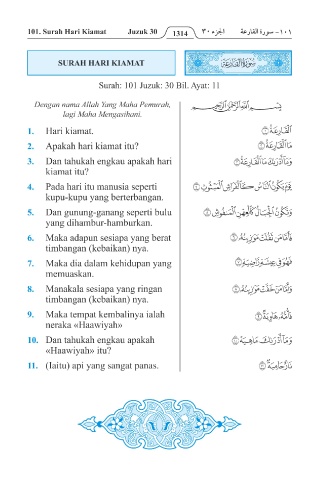 101. Surah Hari Kiamat Juzuk 30 1314 الجزء ٣٠ ١٠١ – سورة القارعة
SURAH HARI KIAMAT سُورَةُ القَارِعَةِ
Surah: 101 Juzuk: 30 Bil. Ayat: 11
Dengan nama Allah Yang Maha Pemurah, بِسْمِ ٱللَّهِ ٱلرَّحْمَٰنِ ٱلرَّحِيمِ
lagi Maha Mengasihani.
1. Hari kiamat. ٱلْقَارِعَةُ ١
2. Apakah hari kiamat itu? مَا ٱلْقَارِعَةُ ٢
3. Dan tahukah engkau apakah hari وَمَآ أَدْرَىٰكَ مَا ٱلْقَارِعَةُ ٣
kiamat itu?
4. Pada hari itu manusia seperti يَوْمَ يَكُونُ ٱلنَّاسُ كَٱلْفَرَاشِ ٱلْمَبْثُوثِ ٤
kupu-kupu yang berterbangan.
5. Dan gunung-ganang seperti bulu وَتَكُونُ ٱلْجِبَالُ كَٱلْعِهْنِ ٱلْمَنفُوشِ ٥
yang dihambur-hamburkan.
6. Maka adapun sesiapa yang berat فَأَمَّا مَن ثَقُلَتْ مَوَٰزِينُهُۥ ٦
timbangan (kebaikan) nya.
7. Maka dia dalam kehidupan yang فَهُوَ فِى عِيشَةٍ رَّاضِيَةٍ ٧
memuaskan.
8. Manakala sesiapa yang ringan وَأَمَّا مَنْ خَفَّتْ مَوَٰزِينُهُۥ ٨
timbangan (kebaikan) nya.
9. Maka tempat kembalinya ialah فَأُمُّهُۥ هَاوِيَةٌ ٩
neraka «Haawiyah»
10. Dan tahukah engkau apakah وَمَآ أَدْرَىٰكَ مَا هِيَهْ ١٠
«Haawiyah» itu?
11. (Iaitu) api yang sangat panas. نَارٌ حَامِيَةٌۢ ١١